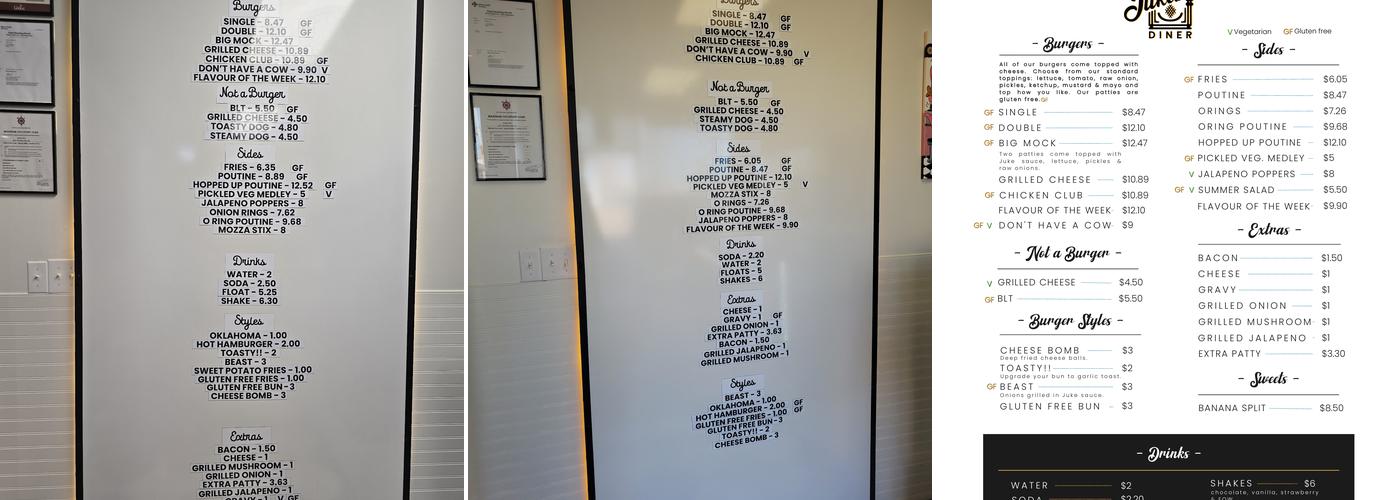 Burgers
SINGLE - 8.47 GF
DOUBLE - 12.10 GF
BIG MOCK - 12.47
GRILLED CHEESE - 10.89
CHICKEN CLUB - 10.89 GF
DON'T HAVE A COW - 9.90 V
FLAVOUR OF THE WEEK - 12.10
Not a Burger
BLT - 5.50 GF
GRILLED CHEESE - 4.50
TOASTY DOG - 4.80
STEAMY DOG - 4.50
Sides
FRIES - 6.35 GF
POUTINE - 8.89 GF
HOPPED UP POUTINE - 12.52 GF
PICKLED VEG MEDLEY - 5 V
JALAPENO POPPERS - 8
ONION RINGS - 7.62
O RING POUTINE - 9.68
MOZZA STIX - 8
Drinks
WATER - 2
SODA - 2.50
FLOAT - 5.25
SHAKE - 6.30
Styles
OKLAHOMA - 1.00
HOT HAMBURGER - 2.00
TOASTY!! - 2
BEAST - 3
SWEET POTATO FRIES - 1.00
GLUTEN FREE FRIES - 1.00
GLUTEN FREE BUN - 3
CHEESE BOMB - 3
Extras
BACON - 1.50
GRILLED MUSHROOM - 1
GRILLED ONION - 1
EXTRA PATTY - 3.63
GRILLED JALAPENO - 1
GRAVY - 1 V GF
Burgers
SINGLE - 8.47 GF
DOUBLE - 12.10 GF
BIG MOCK - 12.47
GRILLED CHEESE - 10.89
DON'T HAVE A COW - 9.90 V
CHICKEN CLUB - 10.89 GF
Not a Burger
BLT - 5.50 GF
GRILLED CHEESE - 4.50
STEAMY DOG - 4.50
TOASTY DOG - 4.80
Sides
FRIES - 6.05 GF
POUTINE - 8.47 GF
HOPPED UP POUTINE - 12.10
PICKLED VEG MEDLEY - 5 V
MOZZA STIX - 8
O RINGS - 7.26
O RING POUTINE - 9.68
JALAPENO POPPERS - 8
FLAVOUR OF THE WEEK - 9.90
Drinks
SODA - 2.20
WATER - 2
FLOATS - 5
SHAKES - 6
Extras
CHEESE - 1
GRAVY - 1 GF
GRILLED ONION - 1
EXTRA PATTY - 3.63
BACON - 1.50
GRILLED JALAPENO - 1
GRILLED MUSHROOM - 1
Styles
BEAST - 3
OKLAHOMA - 1.00 GF
HOT HAMBURGER - 2.00 GF
GLUTEN FREE FRIES - 1.00
GLUTEN FREE BUN - 3
TOASTY!! - 2
CHEESE BOMB - 3
DINER
V Vegetarian GF Gluten free
- Burgers -
All of our burgers come topped with
cheese. Choose from our standard
toppings: lettuce, tomato, raw onion,
pickles, ketchup, mustard & mayo and
top how you like. Our patties are
gluten free. GF
GF SINGLE $8.47
GF DOUBLE $12.10
GF BIG MOCK $12.47
Two patties come topped with
Juke sauce, lettuce, pickles &
raw onions.
GRILLED CHEESE $10.89
GF CHICKEN CLUB $10.89
FLAVOUR OF THE WEEK $12.10
GF V DON'T HAVE A COW $9
- Not a Burger -
V GRILLED CHEESE $4.50
GF BLT $5.50
- Burger Styles -
CHEESE BOMB $3
Deep fried cheese balls.
TOASTY!! $2
Upgrade your bun to garlic toast.
GF BEAST $3
Onions grilled in Juke sauce.
GLUTEN FREE BUN $3
- Sides -
GF FRIES $6.05
POUTINE $8.47
ORINGS $7.26
ORING POUTINE $9.68
HOPPED UP POUTINE $12.10
GF PICKLED VEG. MEDLEY $5
V JALAPENO POPPERS $8
GF V SUMMER SALAD $5.50
FLAVOUR OF THE WEEK $9.90
- Extras -
BACON $1.50
CHEESE $1
GRAVY $1
GRILLED ONION $1
GRILLED MUSHROOM $1
GRILLED JALAPENO $1
EXTRA PATTY $3.30
- Sweets -
BANANA SPLIT $8.50
- Drinks -
WATER $2
SODA $2.20
SHAKES $6
chocolate, vanilla, strawberry